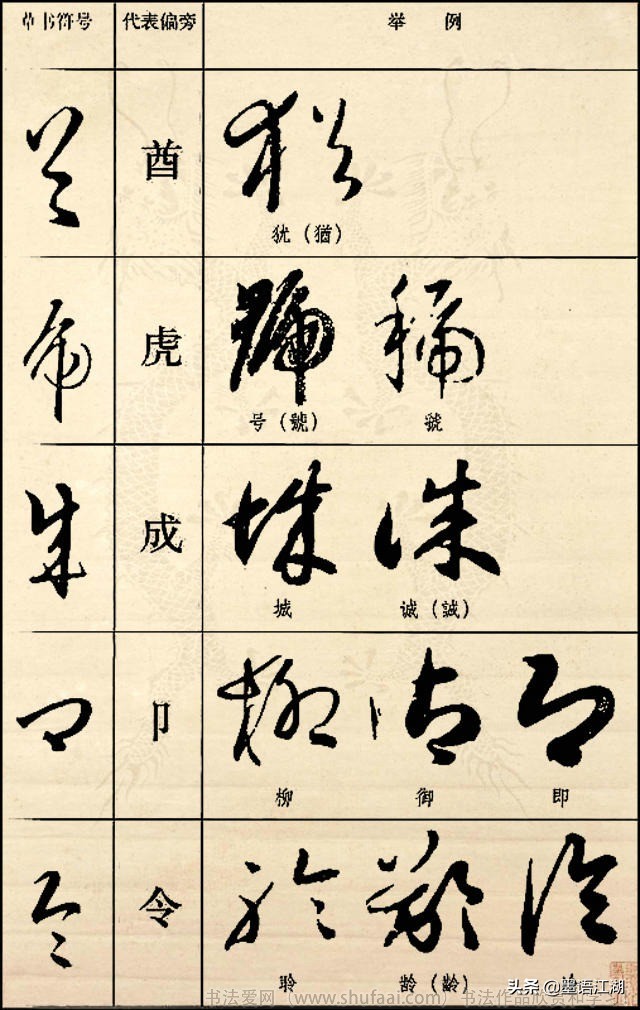 草书符号 代表偏旁 举例
酋
犹（猶）
虎
号（號） 號
成
城 诚（誠）
卩
柳 御 即
令
聆 龄（齡）
头条 @墨语江湖
书法爱网（www.shufaai.com）书法作品欣赏和学习